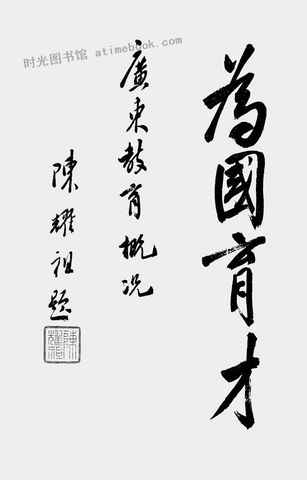 时光图书馆 atimebook.com
為國育才
廣東教育概况
陳耀祖題